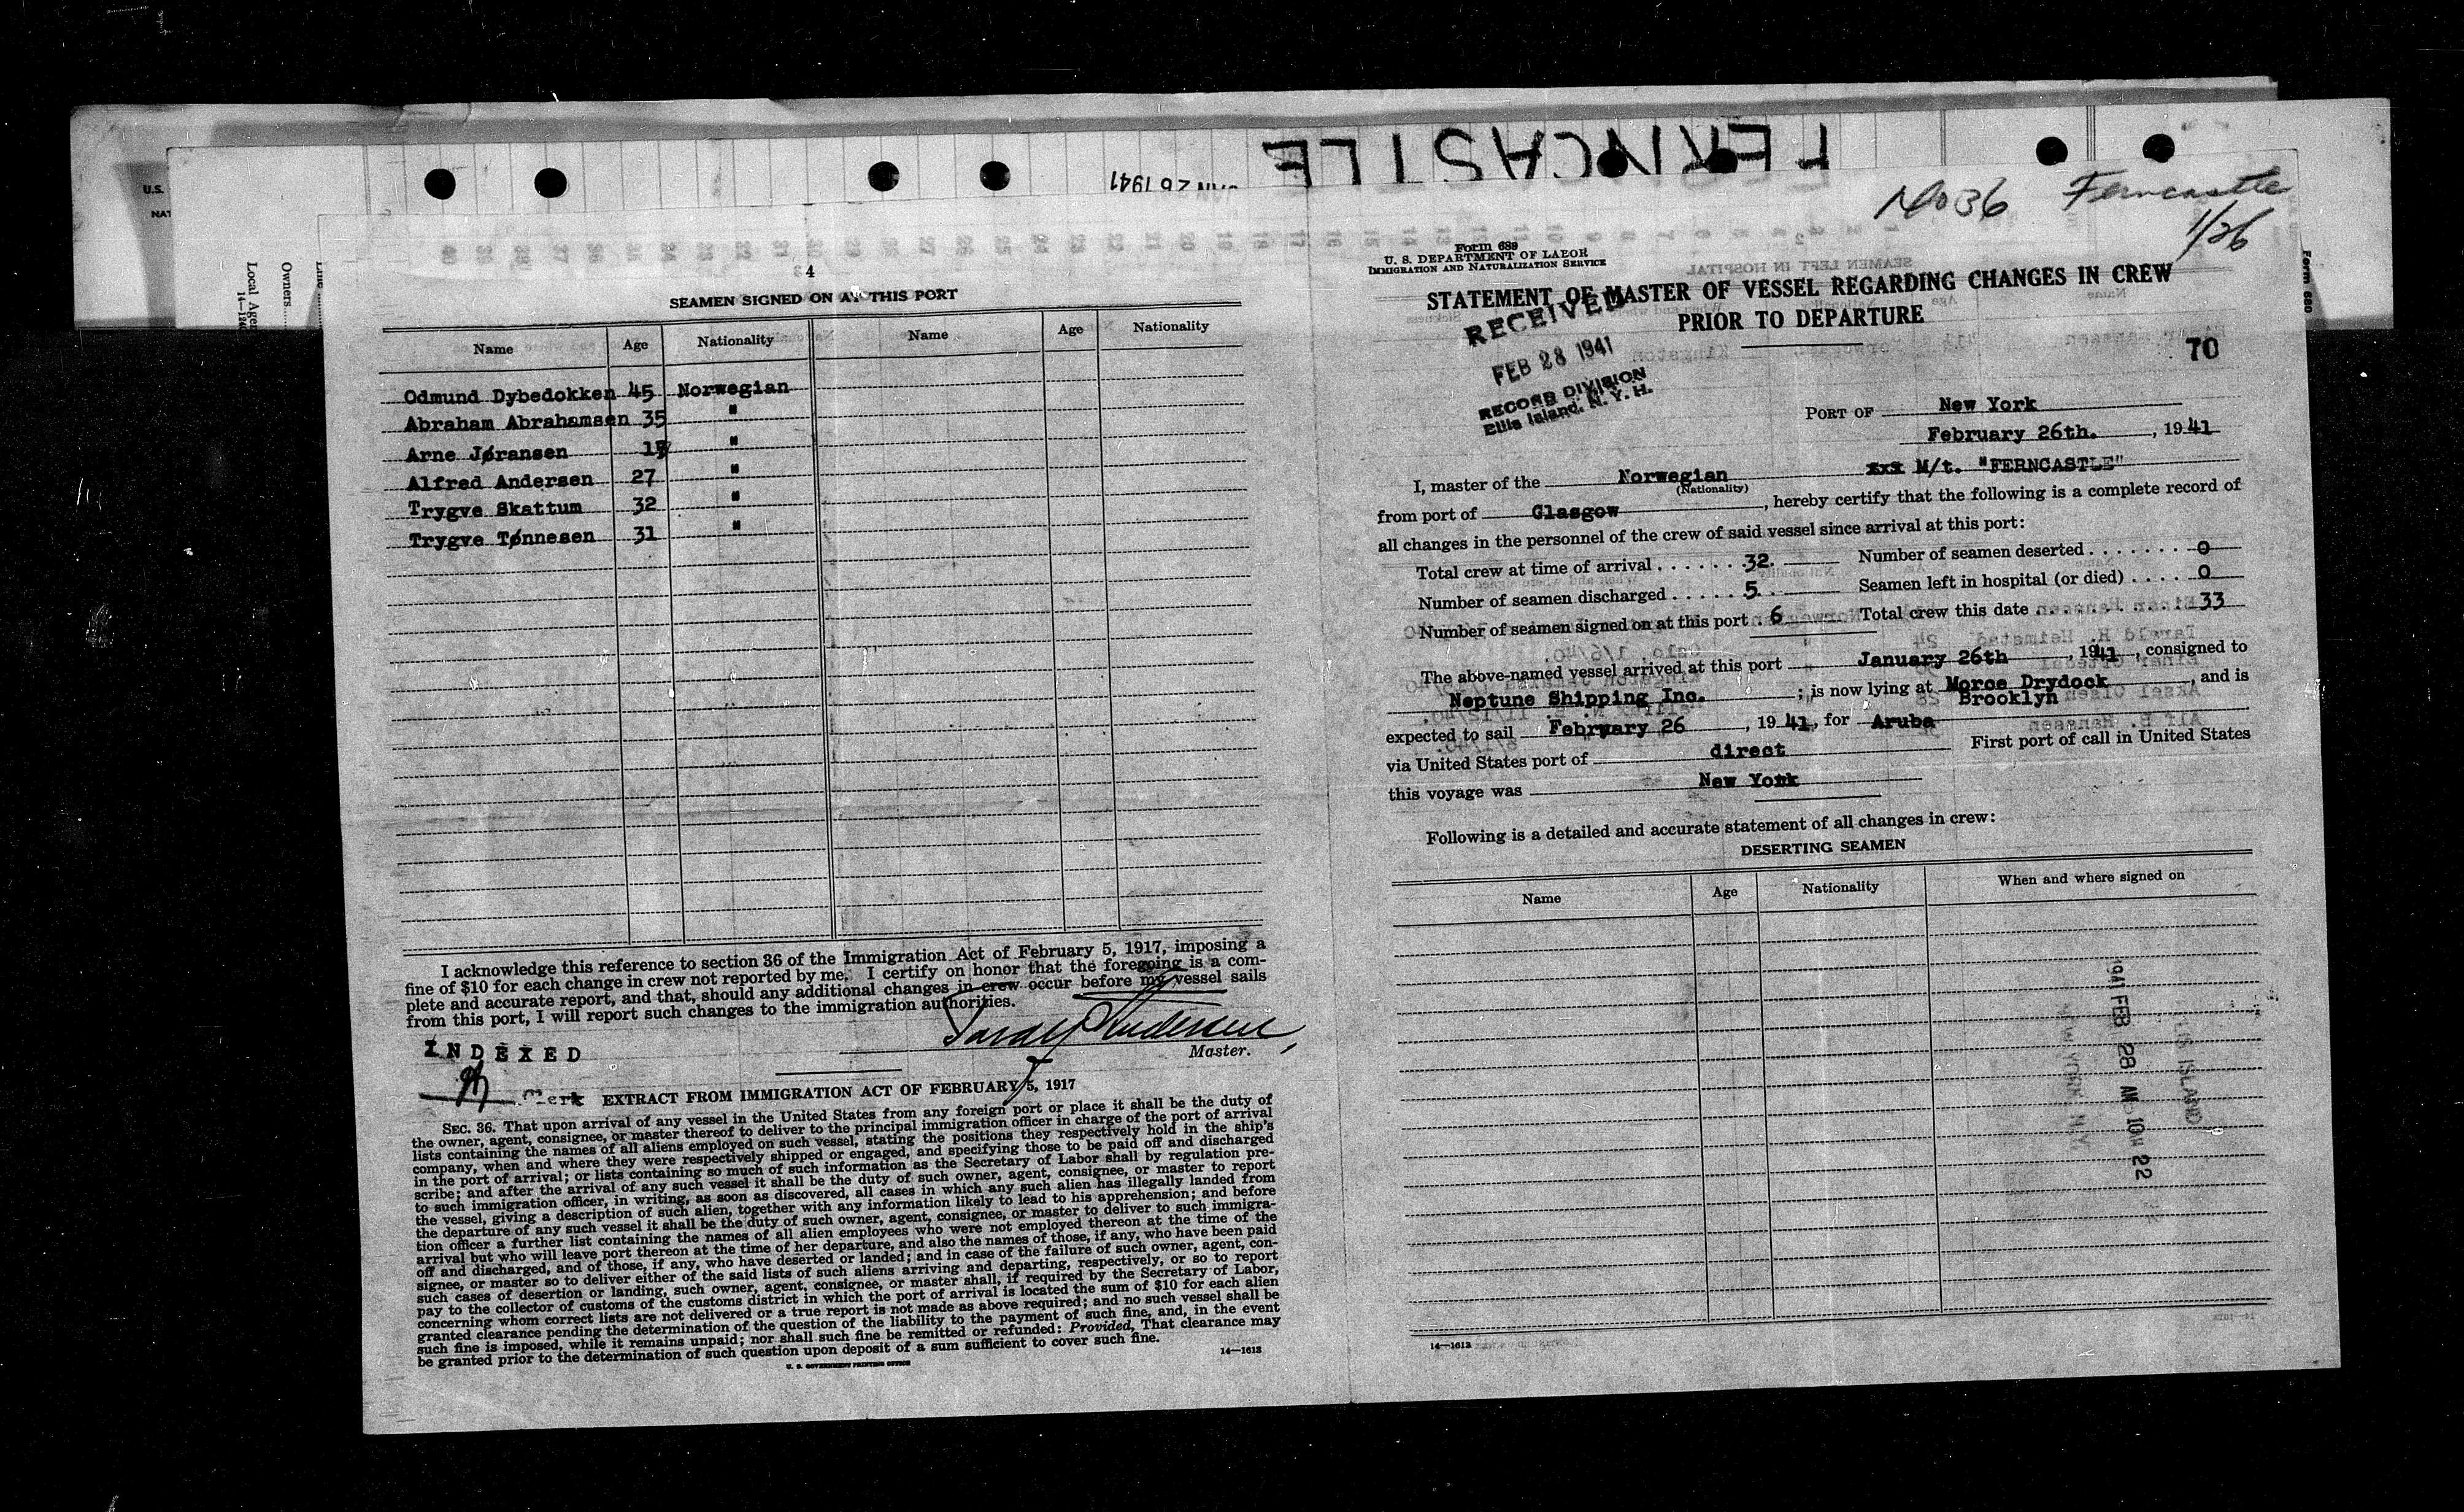 FERNCASTLE
JAN 26 1941
U.S.
NAT
Local Agen
Owners
Line
Form 680
4
SEAMEN SIGNED ON AT THIS PORT
Name Age Nationality Name Age Nationality
Odmund Dybedokken 45 Norwegian
Abraham Abrahamsen 35 "
Arne Jøransen "
Alfred Andersen 27 "
Trygve Skattum 32 "
Trygve Tønnesen 31 "
I acknowledge this reference to section 36 of the Immigration Act of February 5, 1917, imposing a
fine of $10 for each change in crew not reported by me. I certify on honor that the foregoing is a com-
plete and accurate report, and that, should any additional changes in crew occur before my vessel sails
from this port, I will report such changes to the immigration authorities.
Master.
INDEXED
Clerk
EXTRACT FROM IMMIGRATION ACT OF FEBRUARY 5, 1917
SEC. 36. That upon arrival of any vessel in the United States from any foreign port or place it shall be the duty of
the owner, agent, consignee, or master thereof to deliver to the principal immigration officer in charge of the port of arrival
lists containing the names of all aliens employed on such vessel, stating the positions they respectively hold in the ship's
company, when and where they were respectively shipped or engaged, and specifying those to be paid off and discharged
in the port of arrival; or lists containing so much of such information as the Secretary of Labor shall by regulation pre-
scribe; and after the arrival of any such vessel it shall be the duty of such owner, agent, consignee, or master to report
to such immigration officer, in writing, as soon as discovered, all cases in which any such alien has illegally landed from
the vessel, giving a description of such alien, together with any information likely to lead to his apprehension; and before
the departure of any such vessel it shall be the duty of such owner, agent, consignee, or master to deliver to such immigra-
tion officer a further list containing the names of all alien employees who were not employed thereon at the time of the
arrival but who will leave port thereon at the time of her departure, and also the names of those, if any, who have been paid
off and discharged, and of those, if any, who have deserted or landed; and in case of the failure of such owner, agent, con-
signee, or master so to deliver either of the said lists of such aliens arriving and departing, respectively, or so to report
such cases of desertion or landing, such owner, agent, consignee, or master shall, if required by the Secretary of Labor,
pay to the collector of customs of the customs district in which the port of arrival is located the sum of $10 for each alien
concerning whom correct lists are not delivered or a true report is not made as above required; and no such vessel shall be
granted clearance pending the determination of the question of the liability to the payment of such fine, and, in the event
such fine is imposed, while it remains unpaid; nor shall such fine be remitted or refunded: Provided, That clearance may
be granted prior to the determination of such question upon deposit of a sum sufficient to cover such fine.
U. S. GOVERNMENT PRINTING OFFICE 14—1613
Ferncastle
1/26
Form 689
U. S. DEPARTMENT OF LABOR
IMMIGRATION AND NATURALIZATION SERVICE
STATEMENT OF MASTER OF VESSEL REGARDING CHANGES IN CREW
PRIOR TO DEPARTURE
RECEIVED
FEB 28 1941
RECORD DIVISION
Ellis Island, N. Y. H.
70
PORT OF New York
February 26th. , 1941
I, master of the Norwegian xxx M/t. "FERNCASTLE"
(Nationality)
from port of Glasgow , hereby certify that the following is a complete record of
all changes in the personnel of the crew of said vessel since arrival at this port:
Total crew at time of arrival . . . . . . 32. Number of seamen deserted . . . . . . . 0
Number of seamen discharged . . . . . 5. Seamen left in hospital (or died) . . . . 0
Number of seamen signed on at this port . 6 Total crew this date . . . . . . . . . . 33
The above-named vessel arrived at this port January 26th , 1941 , consigned to
Neptune Shipping Inc. ; is now lying at Morce Drydock , and is
Brooklyn
expected to sail February 26 , 19 41, for Aruba
via United States port of direct First port of call in United States
this voyage was New York
Following is a detailed and accurate statement of all changes in crew:
DESERTING SEAMEN
Name Age Nationality When and where signed on
1941 FEB 28 AM 10 22
ELLIS ISLAND
NEW YORK N.Y.
14—1613